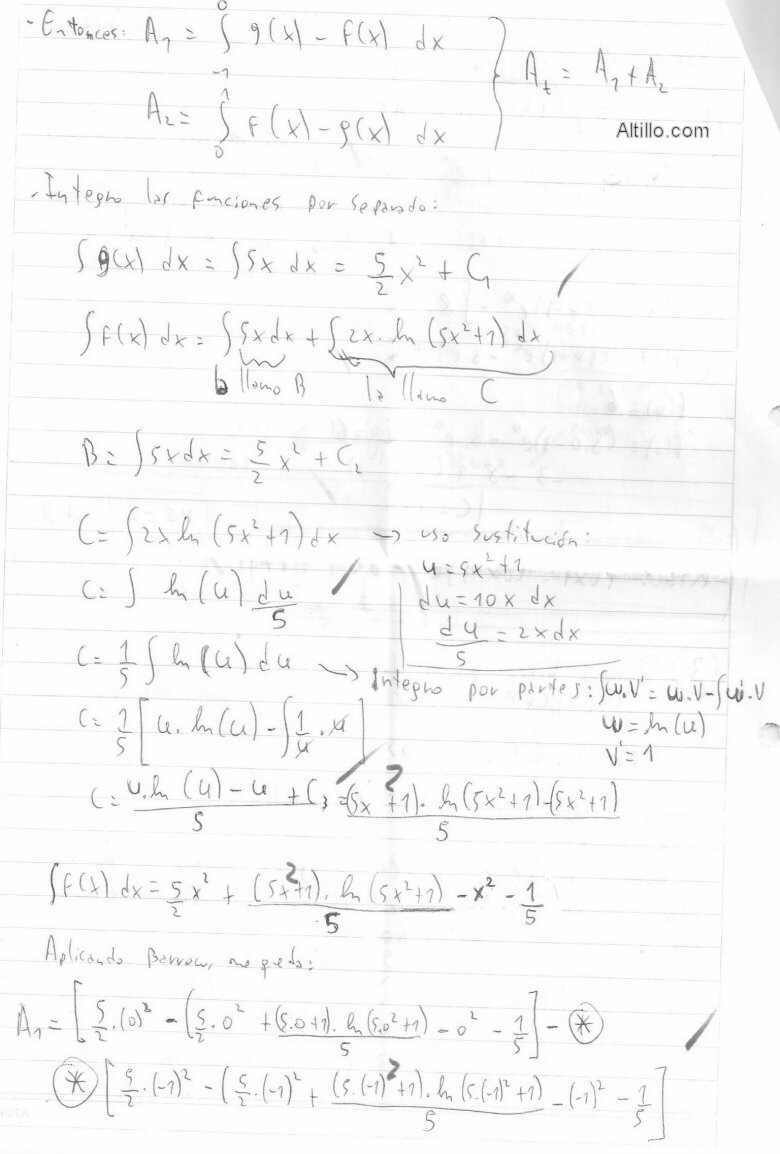 - Entonces: A₁ = ∫₋₁⁰ g(x) - f(x) dx
A₂ = ∫₀¹ f(x) - g(x) dx } Aₜ = A₁ + A₂
Altillo.com
- Integro las funciones por separado:
∫ g(x) dx = ∫ 5x dx = 5/2 x² + C₁
∫ f(x) dx = ∫ 5x dx + ∫ 2x . ln (5x²+1) dx
la llamo B la llamo C
B = ∫ 5x dx = 5/2 x² + C₂
C = ∫ 2x ln (5x²+1) dx → uso sustitución:
u = 5x²+1
C = ∫ ln (u) du/5
du = 10x dx
du/5 = 2x dx
C = 1/5 ∫ ln (u) du → Integro por partes: ∫w.v' = w.v - ∫w'.v
w = ln (u)
v' = 1
C = 1/5 [ u . ln (u) - ∫ 1/u . u ]
C = (u . ln (u) - u)/5 + C₃ = ((5x²+1) . ln (5x²+1) - (5x²+1))/5
∫ f(x) dx = 5/2 x² + ((5x²+1) . ln (5x²+1))/5 - x² - 1/5
Aplicando Barrow, me queda:
A₁ = [ 5/2 . (0)² - ( 5/2 . 0² + ((5.0+1) . ln (5.0²+1))/5 - 0² - 1/5 ] - ⊛
⊛ [ 5/2 . (-1)² - ( 5/2 . (-1)² + ((5.(-1)²+1) . ln (5.(-1)²+1))/5 - (-1)² - 1/5 ]